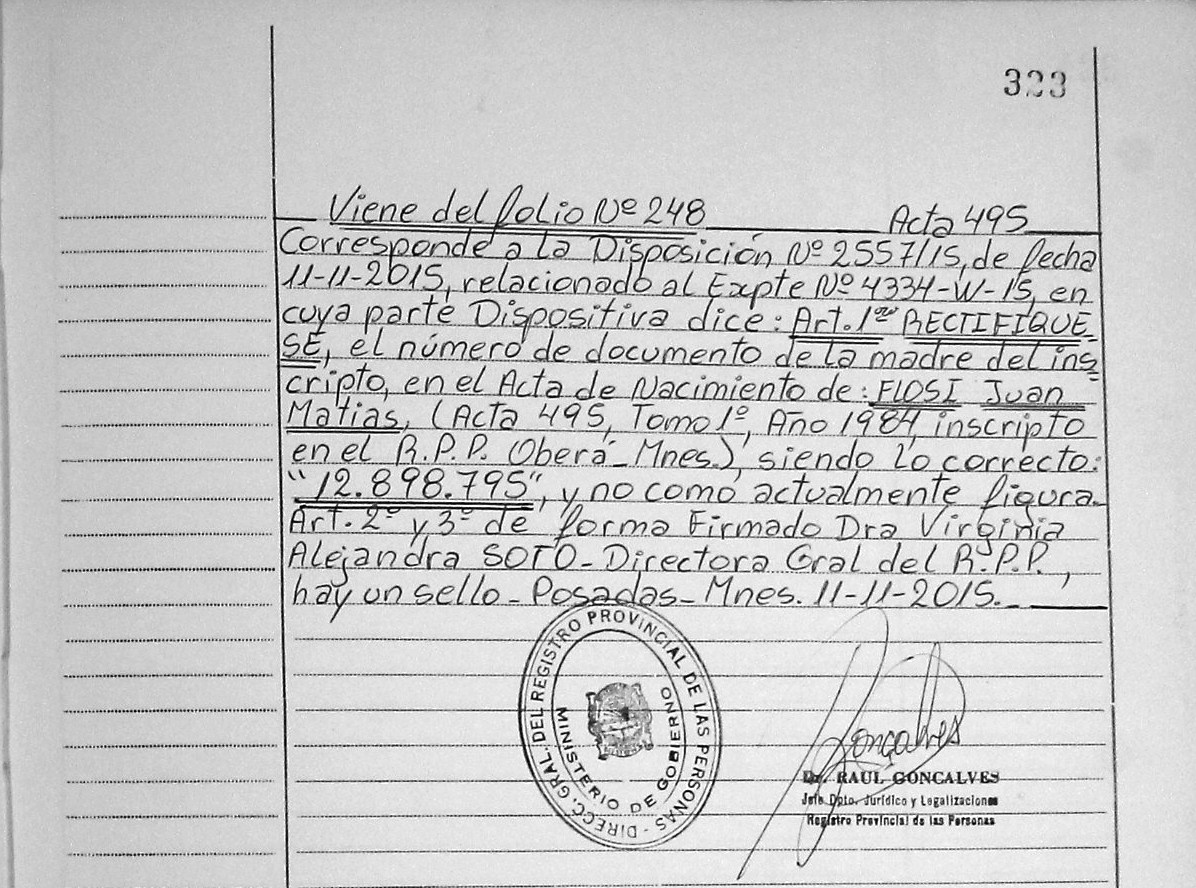 323
Viene del folio Nº 248 Acta 495
Corresponde a la Disposición Nº 2557/15, de fecha
11-11-2015, relacionado al Expte Nº 4334-W-15, en
cuya parte Dispositiva dice: Art. 1º RECTIFIQUE
SE, el número de documento de la madre del ins-
cripto, en el Acta de Nacimiento de: FLOSI Juan
Matias, (Acta 495, Tomo 1º, Año 1984, inscripto
en el R.P.P. (Oberá-Mnes.), siendo lo correcto:
"12.898.795", y no como actualmente figura.
Art. 2º y 3º de forma Firmado Dra Virginia
Alejandra SOTO-Directora Gral del R.P.P.,
hay un sello-Posadas-Mnes. 11-11-2015.-
DIRECC. GRAL. DEL REGISTRO PROVINCIAL DE LAS PERSONAS -
MINISTERIO DE GOBIERNO
Gonçalves
Dr. RAUL GONCALVES
Jefe Dpto. Jurídico y Legalizaciones
Registro Provincial de las Personas